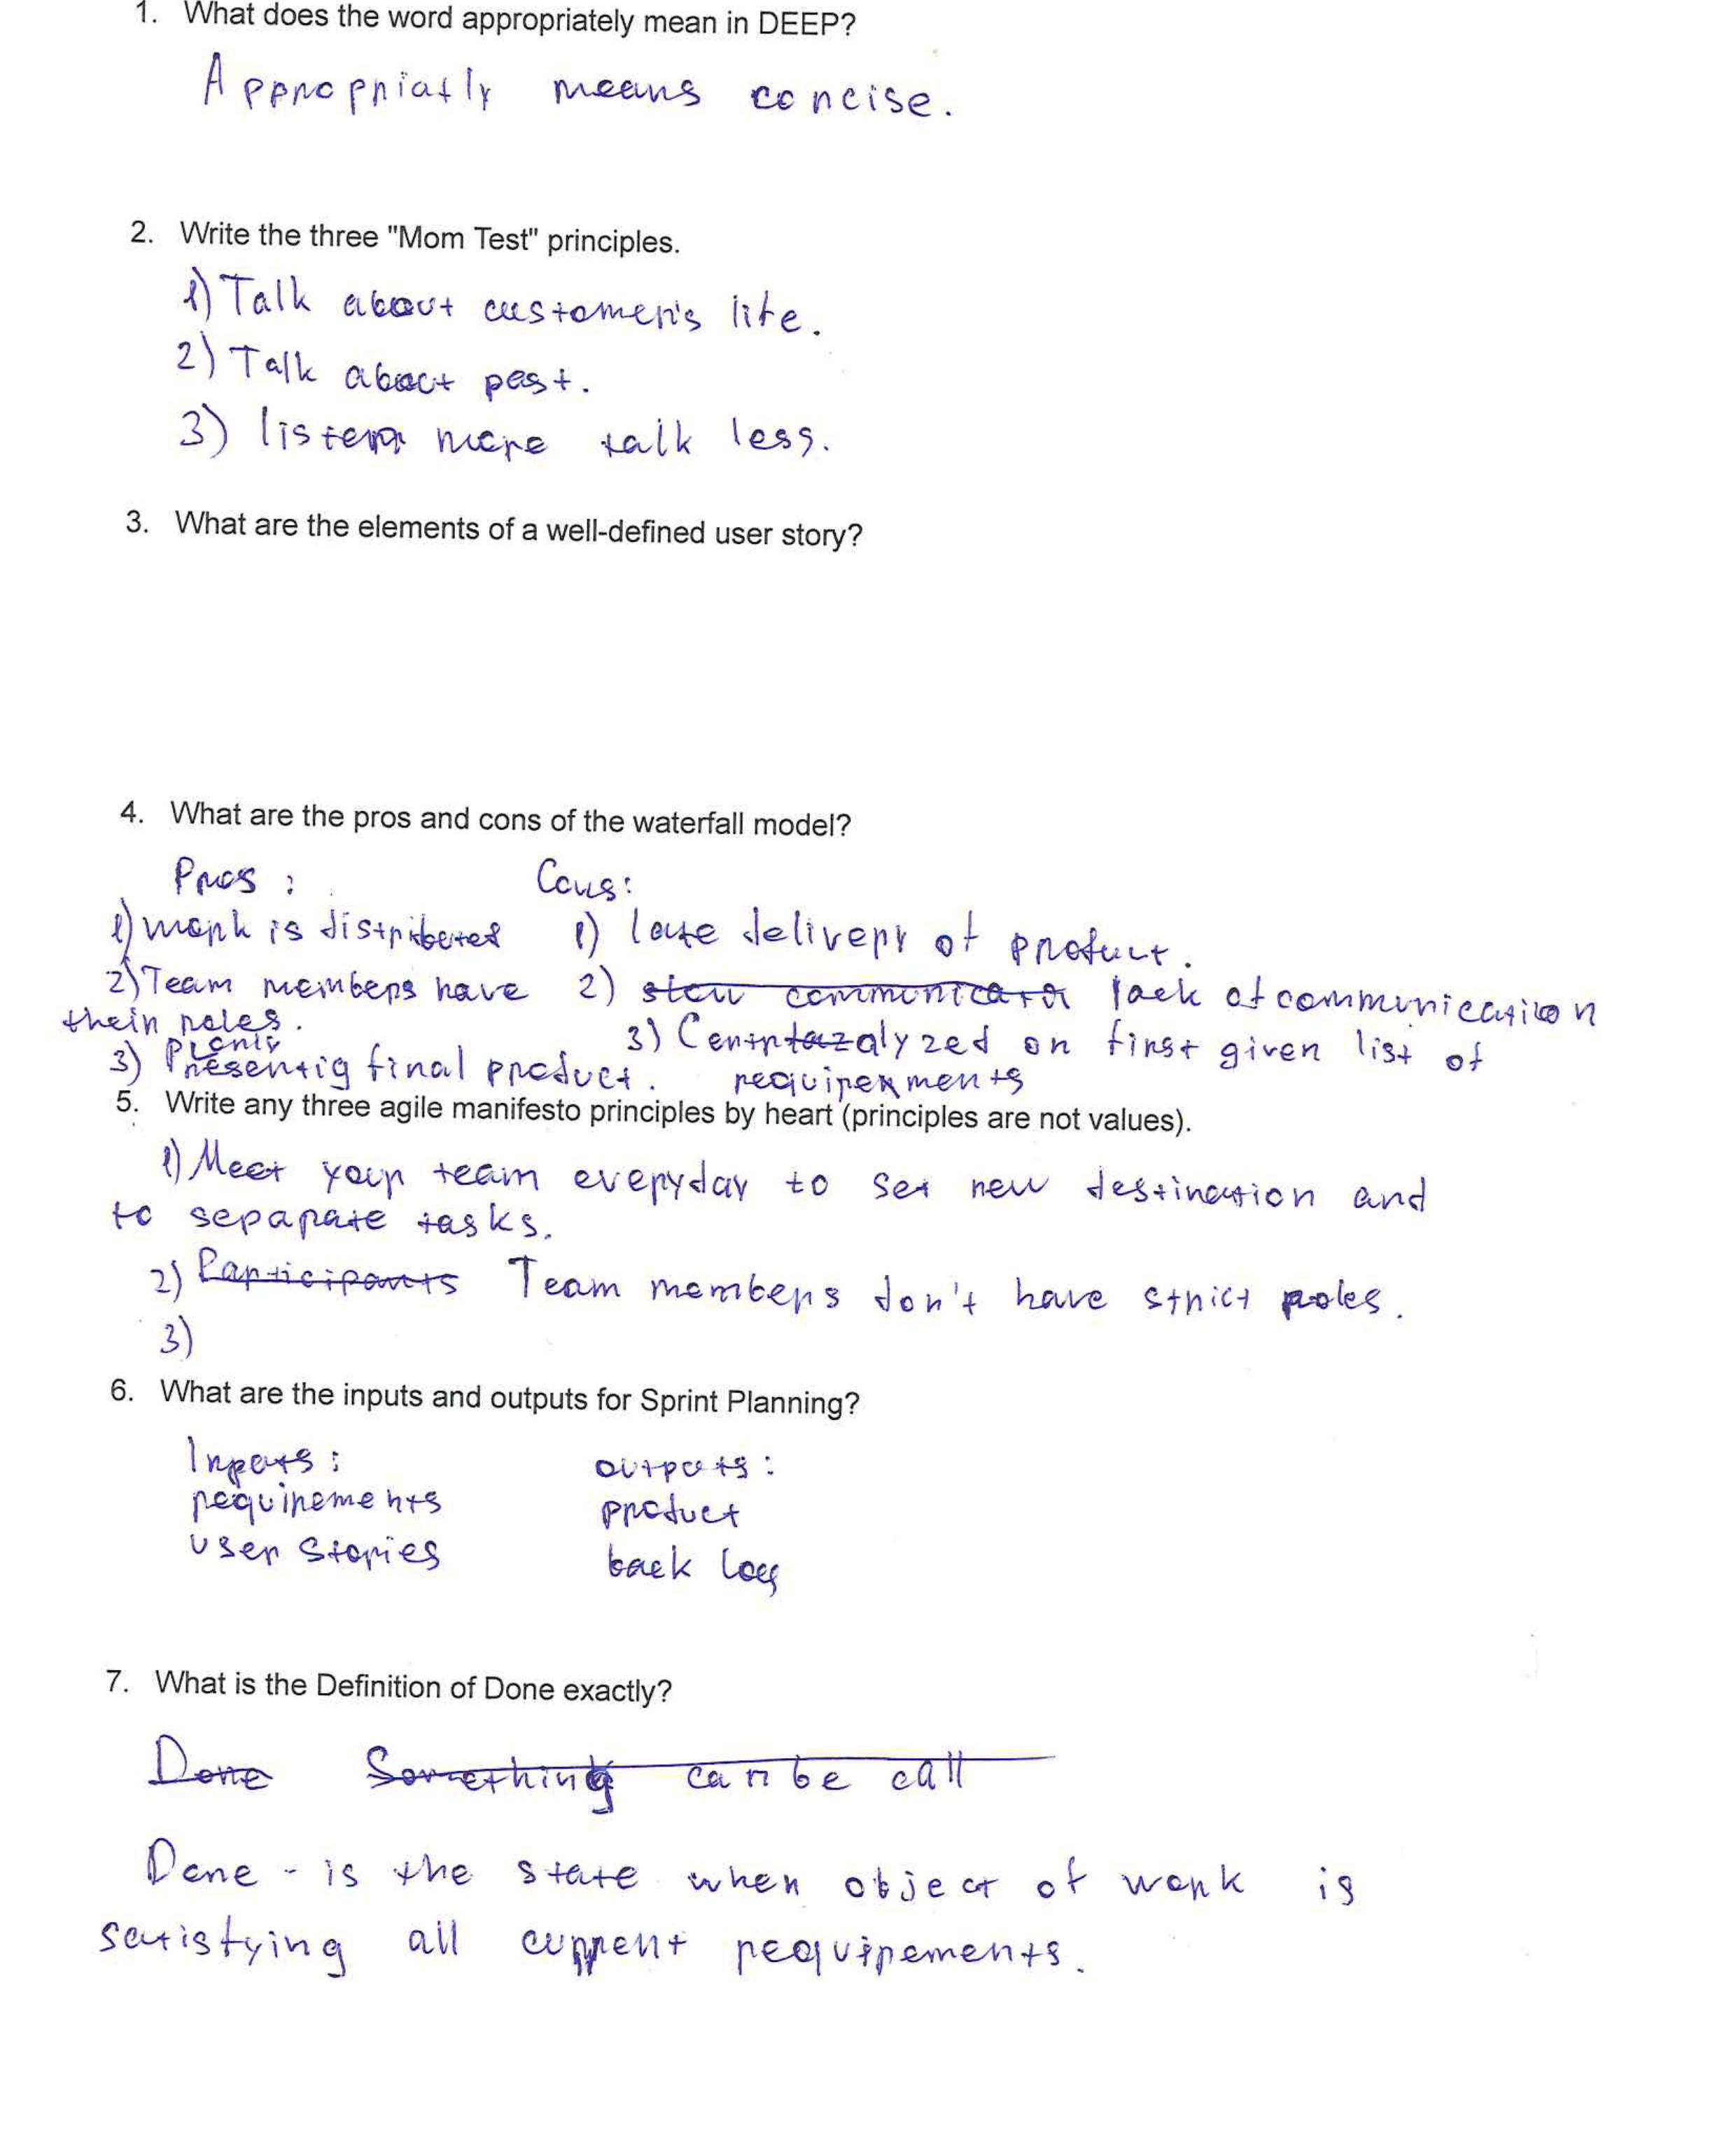 1. What does the word appropriately mean in DEEP?
Appropriatly means concise.
2. Write the three "Mom Test" principles.
1) Talk about customer's life.
2) Talk about past.
3) listen more talk less.
3. What are the elements of a well-defined user story?
4. What are the pros and cons of the waterfall model?
Pros :
1) work is distributed
2) Team members have
their roles.
3) Presentig final product.
Cons:
1) late delivery of product.
2) lack of communication
3) on first given list of
requirements
5. Write any three agile manifesto principles by heart (principles are not values).
1) Meet your team everyday to set new destination and
to separate tasks.
2) Participants Team members don't have strict roles.
3)
6. What are the inputs and outputs for Sprint Planning?
Inputs :
requirements
user stories
outputs :
product
back log
7. What is the Definition of Done exactly?
Done Something can be call
Done - is the state when object of work is
satisfying all current requirements.